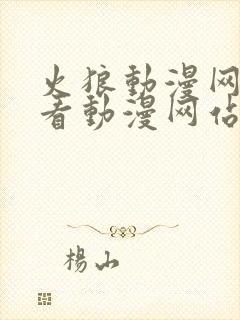 火狼動漫网
看動漫网佔
楊山